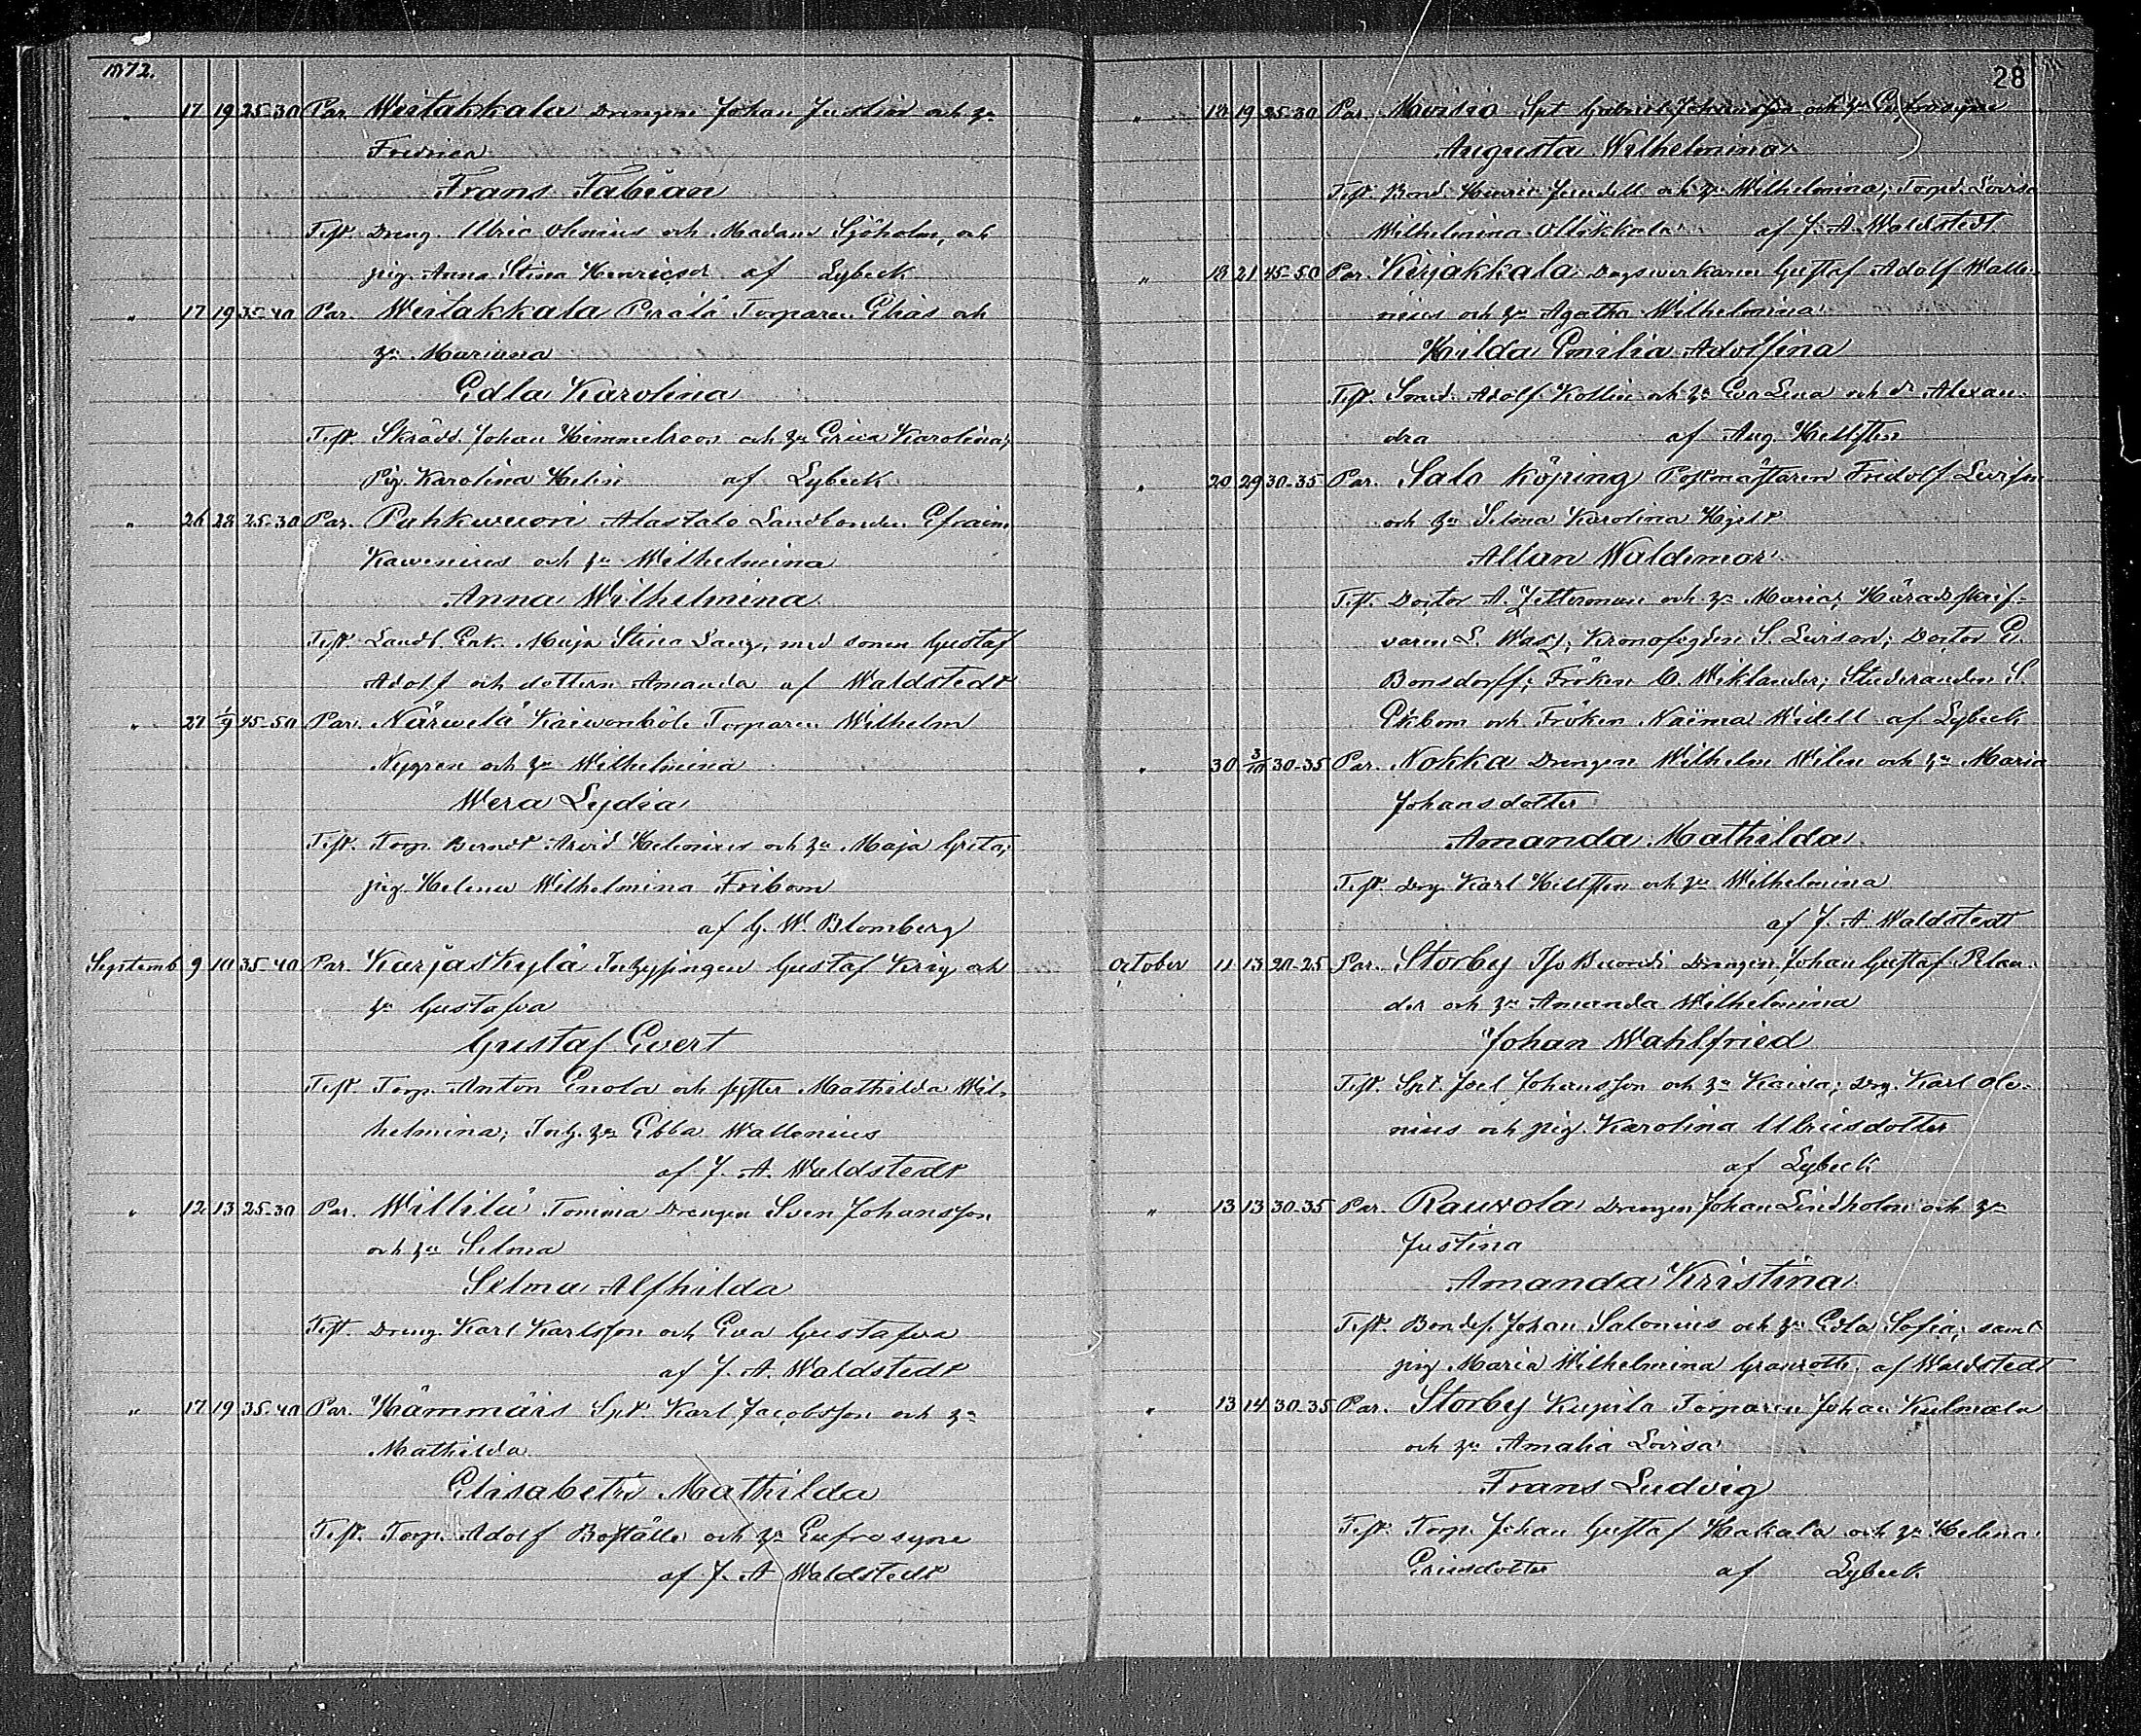 1872.
" 17 19 25-30 Par. Weitakkala Drengen Johan Justin och h:u
Fredrica
Frans Fabian
Test. Dreng. Ulric Olenius och Madam Sjöholm, och
pig. Anna Stina Henricsd. af Lybeck
" 17 19 35-40 Par. Weitakkala Perälä Torparen Elias och
h:u Mariana
Edla Karolina
Test. Skrädd. Johan Himmelroos och h:u Erica Karolina;
Pig. Karolina Helin af Lybeck
" 26 28 25-30 Par. Puhkwuori Alastalo Landbonden Efraim
Kavenius och h:u Wilhelmina
Anna Wilhelmina
Test. Landb. Enk. Maja Stina Lang, med sonen Gustaf
Adolf och dottern Amanda af Waldstedt
" 27 1/9 45-50 Par. Närwelä Kaiwonköle Torparen Wilhelm
Nygren och h:u Wilhelmina
Wera Lydia
Test. Torp. Berndt Arvid Helenius och h:u Maja Greta;
pig. Helena Wilhelmina Fribom
af G. W. Blomberg
Septemb. 9 10 35-40 Par. Karjaskylä Inhysingen Gustaf Krig och
h:u Gustafva
Gustaf Evert
Test. Torp. Anton Enola och syster Mathilda Wil-
helmina; Inh. h:u Ebba Wallenius
af J. A. Waldstedt
" 12 13 25-30 Par. Willilä Tomma Drengen Sven Johansson
och h:u Selma
Selma Alfhilda
Test. Dreng. Karl Karlsson och Eva Gustafva
af J. A. Waldstedt
" 17 19 35-40 Par. Hämmäis Spt. Karl Jacobsson och h:u
Mathilda
Elisabeth Mathilda
Test. Torp. Adolf Boställe och h:u Eufrosyne
af J. A. Waldstedt
28
" 18 19 25-30 Par. Moisio Spt Gabriel Johansson och h:u Eufrosyne
Augusta Wilhelmina
Test. Bond. Henric Jundell och h:u Wilhelmina; Torpd. Lovisa
Wilhelmina Ollikkala af J. A. Waldstedt
" 18 21 45-50 Par. Kirjakkala Dagsverkaren Gustaf Adolf Walle-
nius och h:u Agatha Wilhelmina
Hilda Emilia Adolfina
Test. Smed. Adolf Kollin och h:u Eva Lena och d:r Alexan-
dra af Aug. Hellsten
" 20 29 30-35 Par. Salo Köping Postmästaren Fridolf Levison
och h:u Selma Karolina Hjelt
Allan Waldemar
Test. Doctor A. Zetterman och h:u Maria; Häradsskrif-
varen L. Wasz; Kronofogden S. Levison; Doctor E.
Bonsdorff; Fröken O. Wiklander; Studeranden S.
Ekbom och Fröken Naëma Widell af Lybeck
" 30 3/10 30-35 Par. Nokka Drengen Wilhelm Wilen och h:u Maria
Johansdotter
Amanda Mathilda
Test. Dng. Karl Hellsten och h:u Wilhelmina
af J. A. Waldstedt
October 11 13 20-25 Par. Storby Drengen Johan Gustaf Pelan-
der och h:u Amanda Wilhelmina
Johan Wahlfried
Test. Spt. Joel Johansson och h:u Kaisa; Dng. Karl Ole-
nius och pig. Karolina Ulricsdotter
af Lybeck
" 13 13 30-35 Par. Rauvola Drengen Johan Lindholm och h:u
Justina
Amanda Kristina
Test. Bondes. Johan Salonius och h:u Edla Sofia, samt
pig Maria Wilhelmina Granroth af Waldstedt
" 13 14 30-35 Par. Storby Kupila Torparen Johan Kulmala
och h:u Amalia Lovisa
Frans Ludvig
Test. Torp. Johan Gustaf Hakala och h:u Helena
Ericsdotter af Lybeck